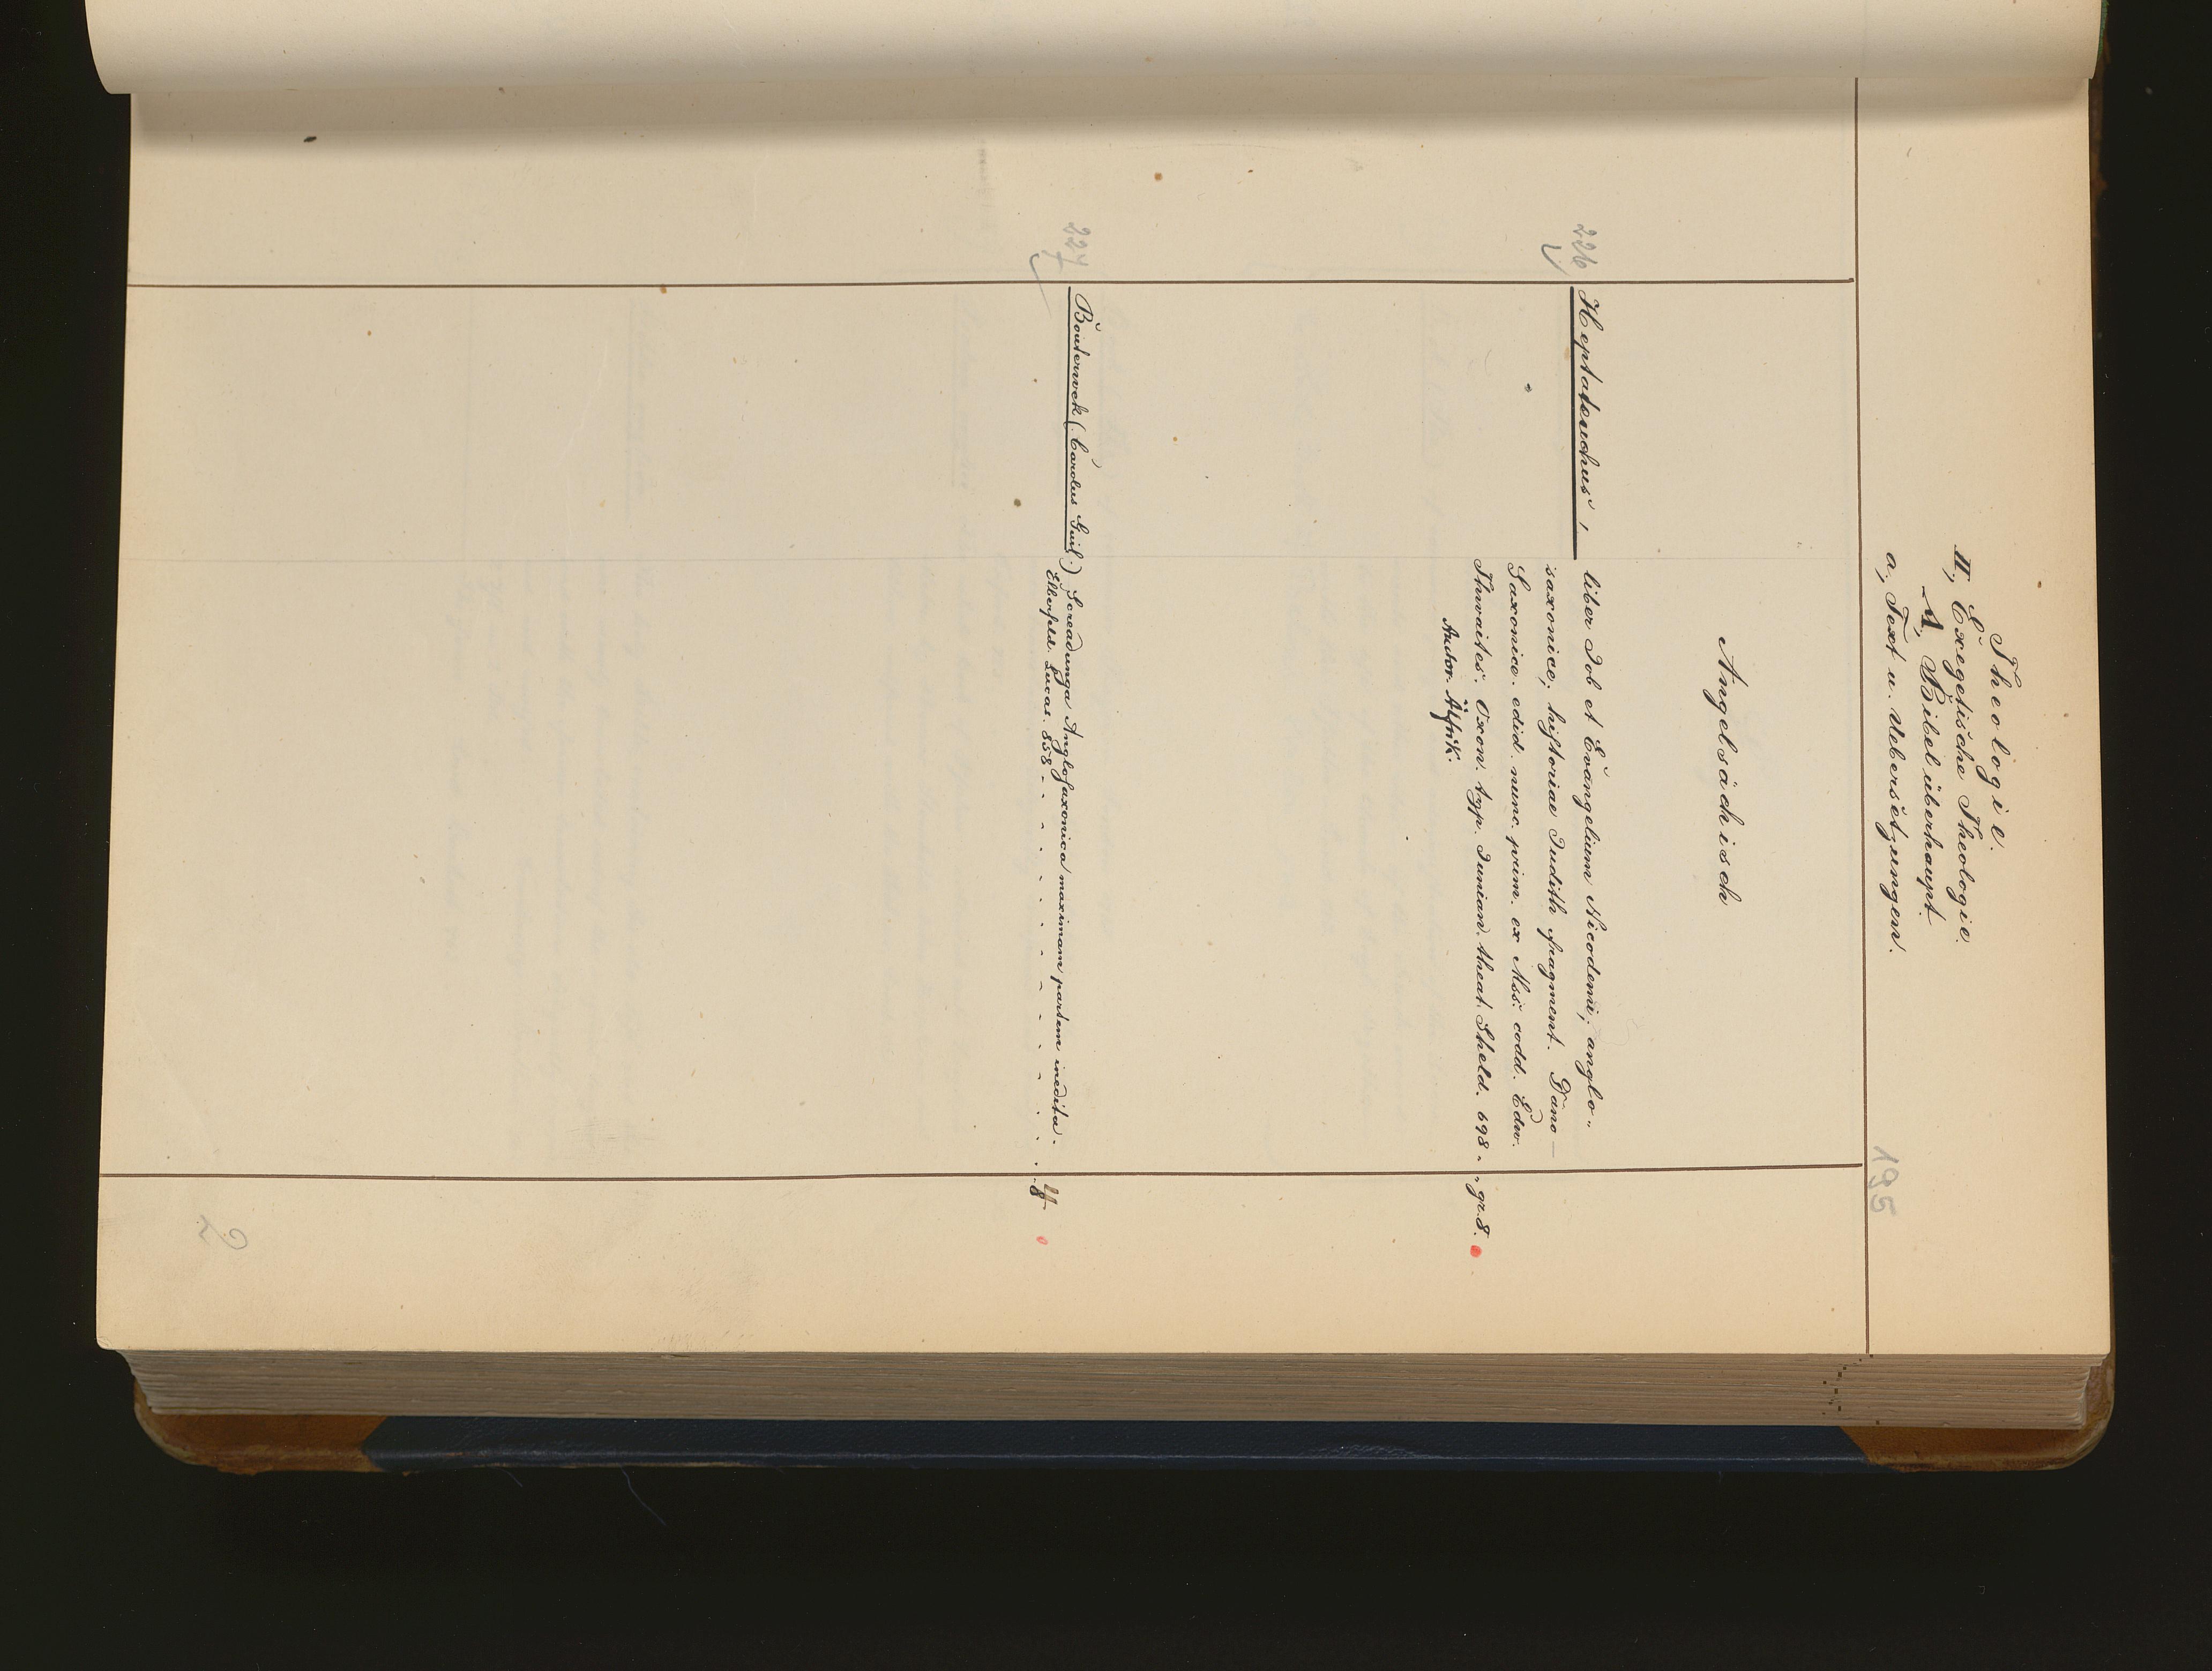 Theologie.
II, Exegetische Theologie.
A, Bibel überhaupt.
a, Text u. Uebersetzungen.
195
Angelsächisch
226
Heptateuchus, liber Job et Evangelium Nicodemi; anglo-
saxonice; historiae Judith fragment. Dano-
Saxonice. edid. nunc. prim. ex Mss. codd. Edw.
Thwaites. Oxon. typ. Junian. theat. Sheld. 698. gr. 8.
Autor. Älfrik.
227
Bouterwek (Carolus Guil.) Screadunga Anglosaxonica maximam partem inedita.
Elberfeld. Lucas. 858 - - - - - - - - - - - 4
8
2